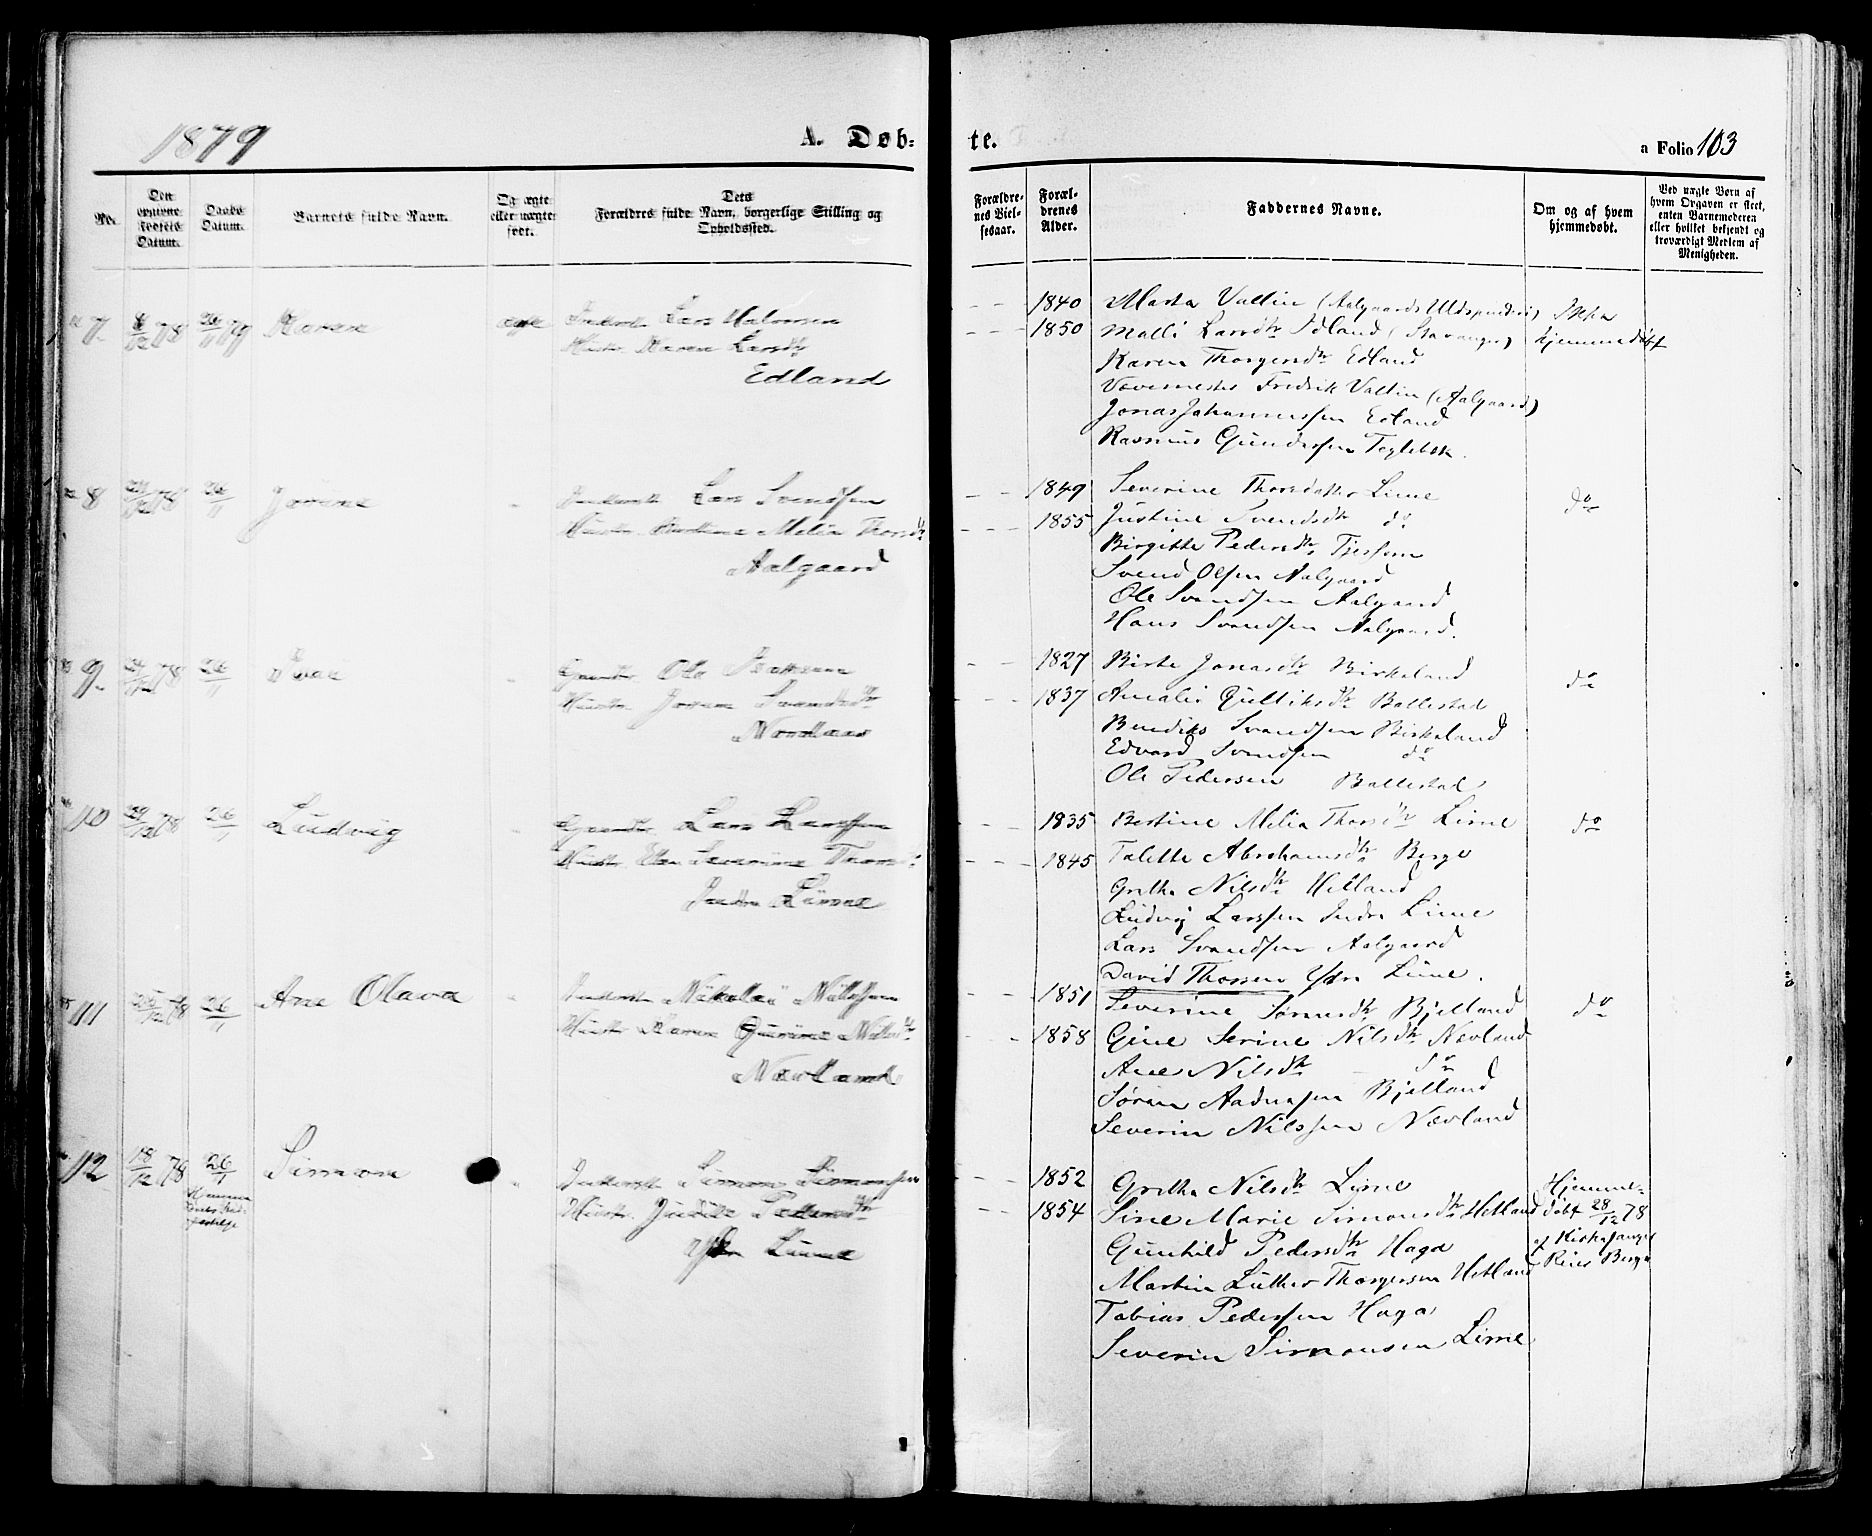 1879
A. Døb-
te.
a Folio 103
No.
Den
Datum.
Daabs
Datum.
Barnets fulde Navn.
Og ægte
eller uægte
født.
Dets
Forældres fulde Navn, borgerlige Stilling og
Opholdssted.
Forældre-
nes Viel-
sesaar.
Foræl-
drenes
Alder.
Faddernes Navne.
Om og af hvem
hjemmedøbt.
Ved uægte Børn af
hvem Opgaven er skeet,
enten Barnemoderen
eller hvilket bekjendt og
troværdigt Medlem af
Menigheden.
7 8/12 78 26/1 79 Karen ægte Lars
Hustr. Karen Larsdtr
Edland
1840
1850
Marta Vallin (Aalgaards Uldspinderi)
Malli Larsdtr Edland (Stavanger)
Karen Thorgersdtr Edland
Vævemester Fredrik Vallin (Aalgaard)
Jonas Johannessen Edland
Rasmus Gundersen
Ikke
hjemmedøbt
8 78 26/1 Lars Svendsen
Hustr. Melia Thorsdtr
Aalgaard
1849
1855
Severine Thorsdatter Lime
Justine Svendsdtr do
Birgitte Pedersdtr
Svend Olsen Aalgaard
Ole Svendsen Aalgaard
Hans Svendsen Aalgaard.
do
9 24/12 78 26/1 Gaardbr. Ole
Hustr. Joren Svendsdtr
1827
1837
Birte Jonasdtr Birkeland
Amalie Gulliksdtr Ballestad
Bendiks Svendsen Birkeland
Edvard Svendsen do
Ole Pedersen Ballestad
do
10 29/12 78 26/1 Ludvig Gaardbr. Lars Larssen
Hustr. Severine Thorsdtr
Lime
1835
1845
Bertine Melia Thorsdtr Lime
Talette Abrahamsdtr Berge
Grethe Nilsdtr Helland
Ludvig Larssen Indre Lime
Lars Svendsen Aalgaard
David Thorsen Ydre Lime.
do
11 78 26/1 Ane Olava Nikolai Nilssen
Hustr. Karen Gurine
Nævland
1851
1858
Severine Sørensdtr Bjelland
Gine Serine Nilsdtr Nævland
Ane Nilsdtr do
Søren Aadnesen Bjelland
Severin Nilssen Nævland
do
12 18/12 78 26/1 Simon Simon Simonsen
Hustr. Judite Pedersdtr
Ydre Lime
1852
1854
Grethe Nilsdtr Lime
Sine Marie Simonsdtr Hetland
Gunhild Pedersdtr Haga
Martin Luther Thorgersen Hetland
Tobias Pederssen Haga
Severin Simonsen Lime
Hjemme-
døbt 28/12 78
af Kirkesanger
Berge